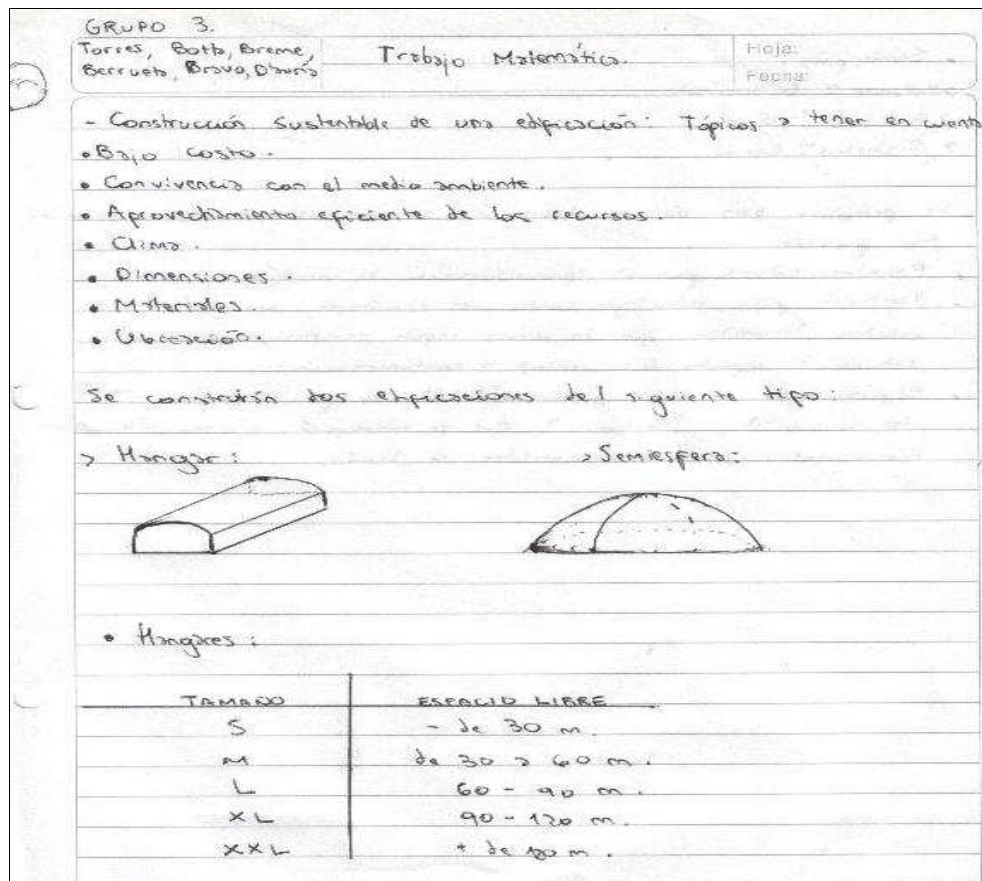 GRUPO 3.
Torres, Botto, Breme,
Berrueto, Bravo, D'auría
Trabajo Matemática.
Hoja:
Fecha:
- Construcción sustentable de una edificación: Tópicos a tener en cuenta
• Bajo costo.
• Convivencia con el medio ambiente.
• Aprovechamiento eficiente de los recursos.
• Clima.
• Dimensiones.
• Materiales.
• Ubicación.
Se construirán dos edificaciones del siguiente tipo:
> Hangar:
> Semiesfera:
• Hangares:
TAMAÑO ESPACIO LIBRE
S - de 30 m.
M de 30 a 60 m.
L 60 - 90 m.
XL 90 - 120 m.
XXL + de 120 m.